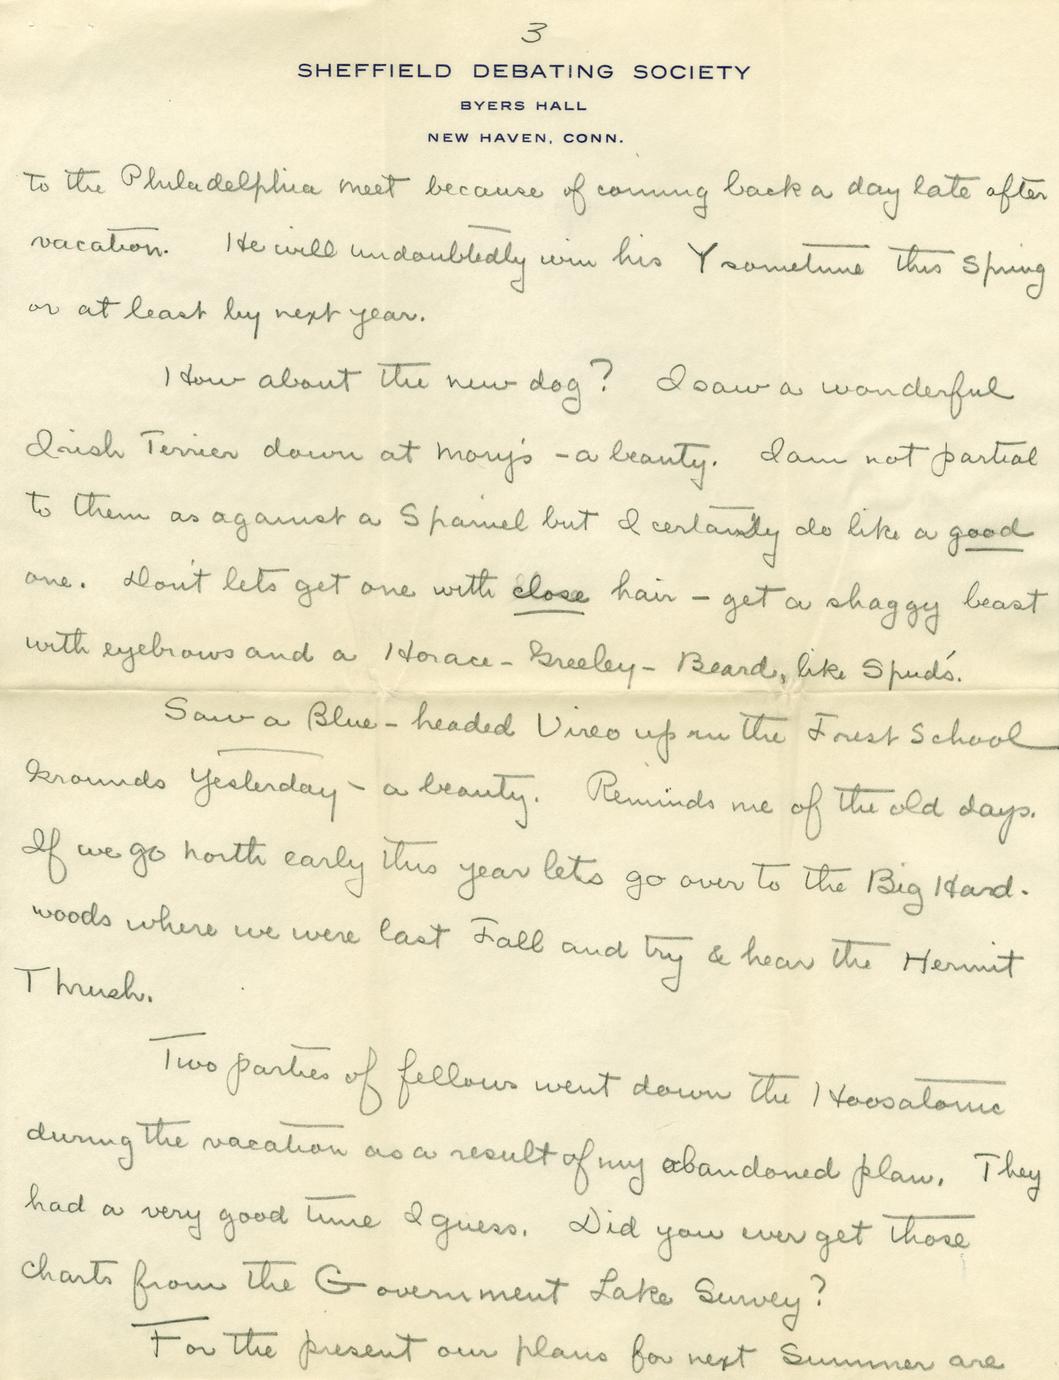 3
SHEFFIELD DEBATING SOCIETY
BYERS HALL
NEW HAVEN, CONN.
to the Philadelphia meet because of coming back a day late after
vacation. He will undoubtedly win his Y sometime this Spring
or at least by next year.
How about the new dog? I saw a wonderful
Irish Terrier down at Mory's - a beauty. I am not partial
to them as against a Spaniel but I certainly do like a good
one. Don't lets get one with close hair - get a shaggy beast
with eyebrows and a Horace-Greeley-Beard, like Spud's.
Saw a Blue-headed Vireo up in the Forest School
Grounds Yesterday - a beauty. Reminds me of the old days.
If we go north early this year lets go over to the Big Hard-
woods where we were last Fall and try & hear the Hermit
Thrush.
Two parties of fellows went down the Hoosatonic
during the vacation as a result of my abandoned plan. They
had a very good time I guess. Did you ever get those
charts from the Government Lake Survey?
For the present our plans for next Summer are